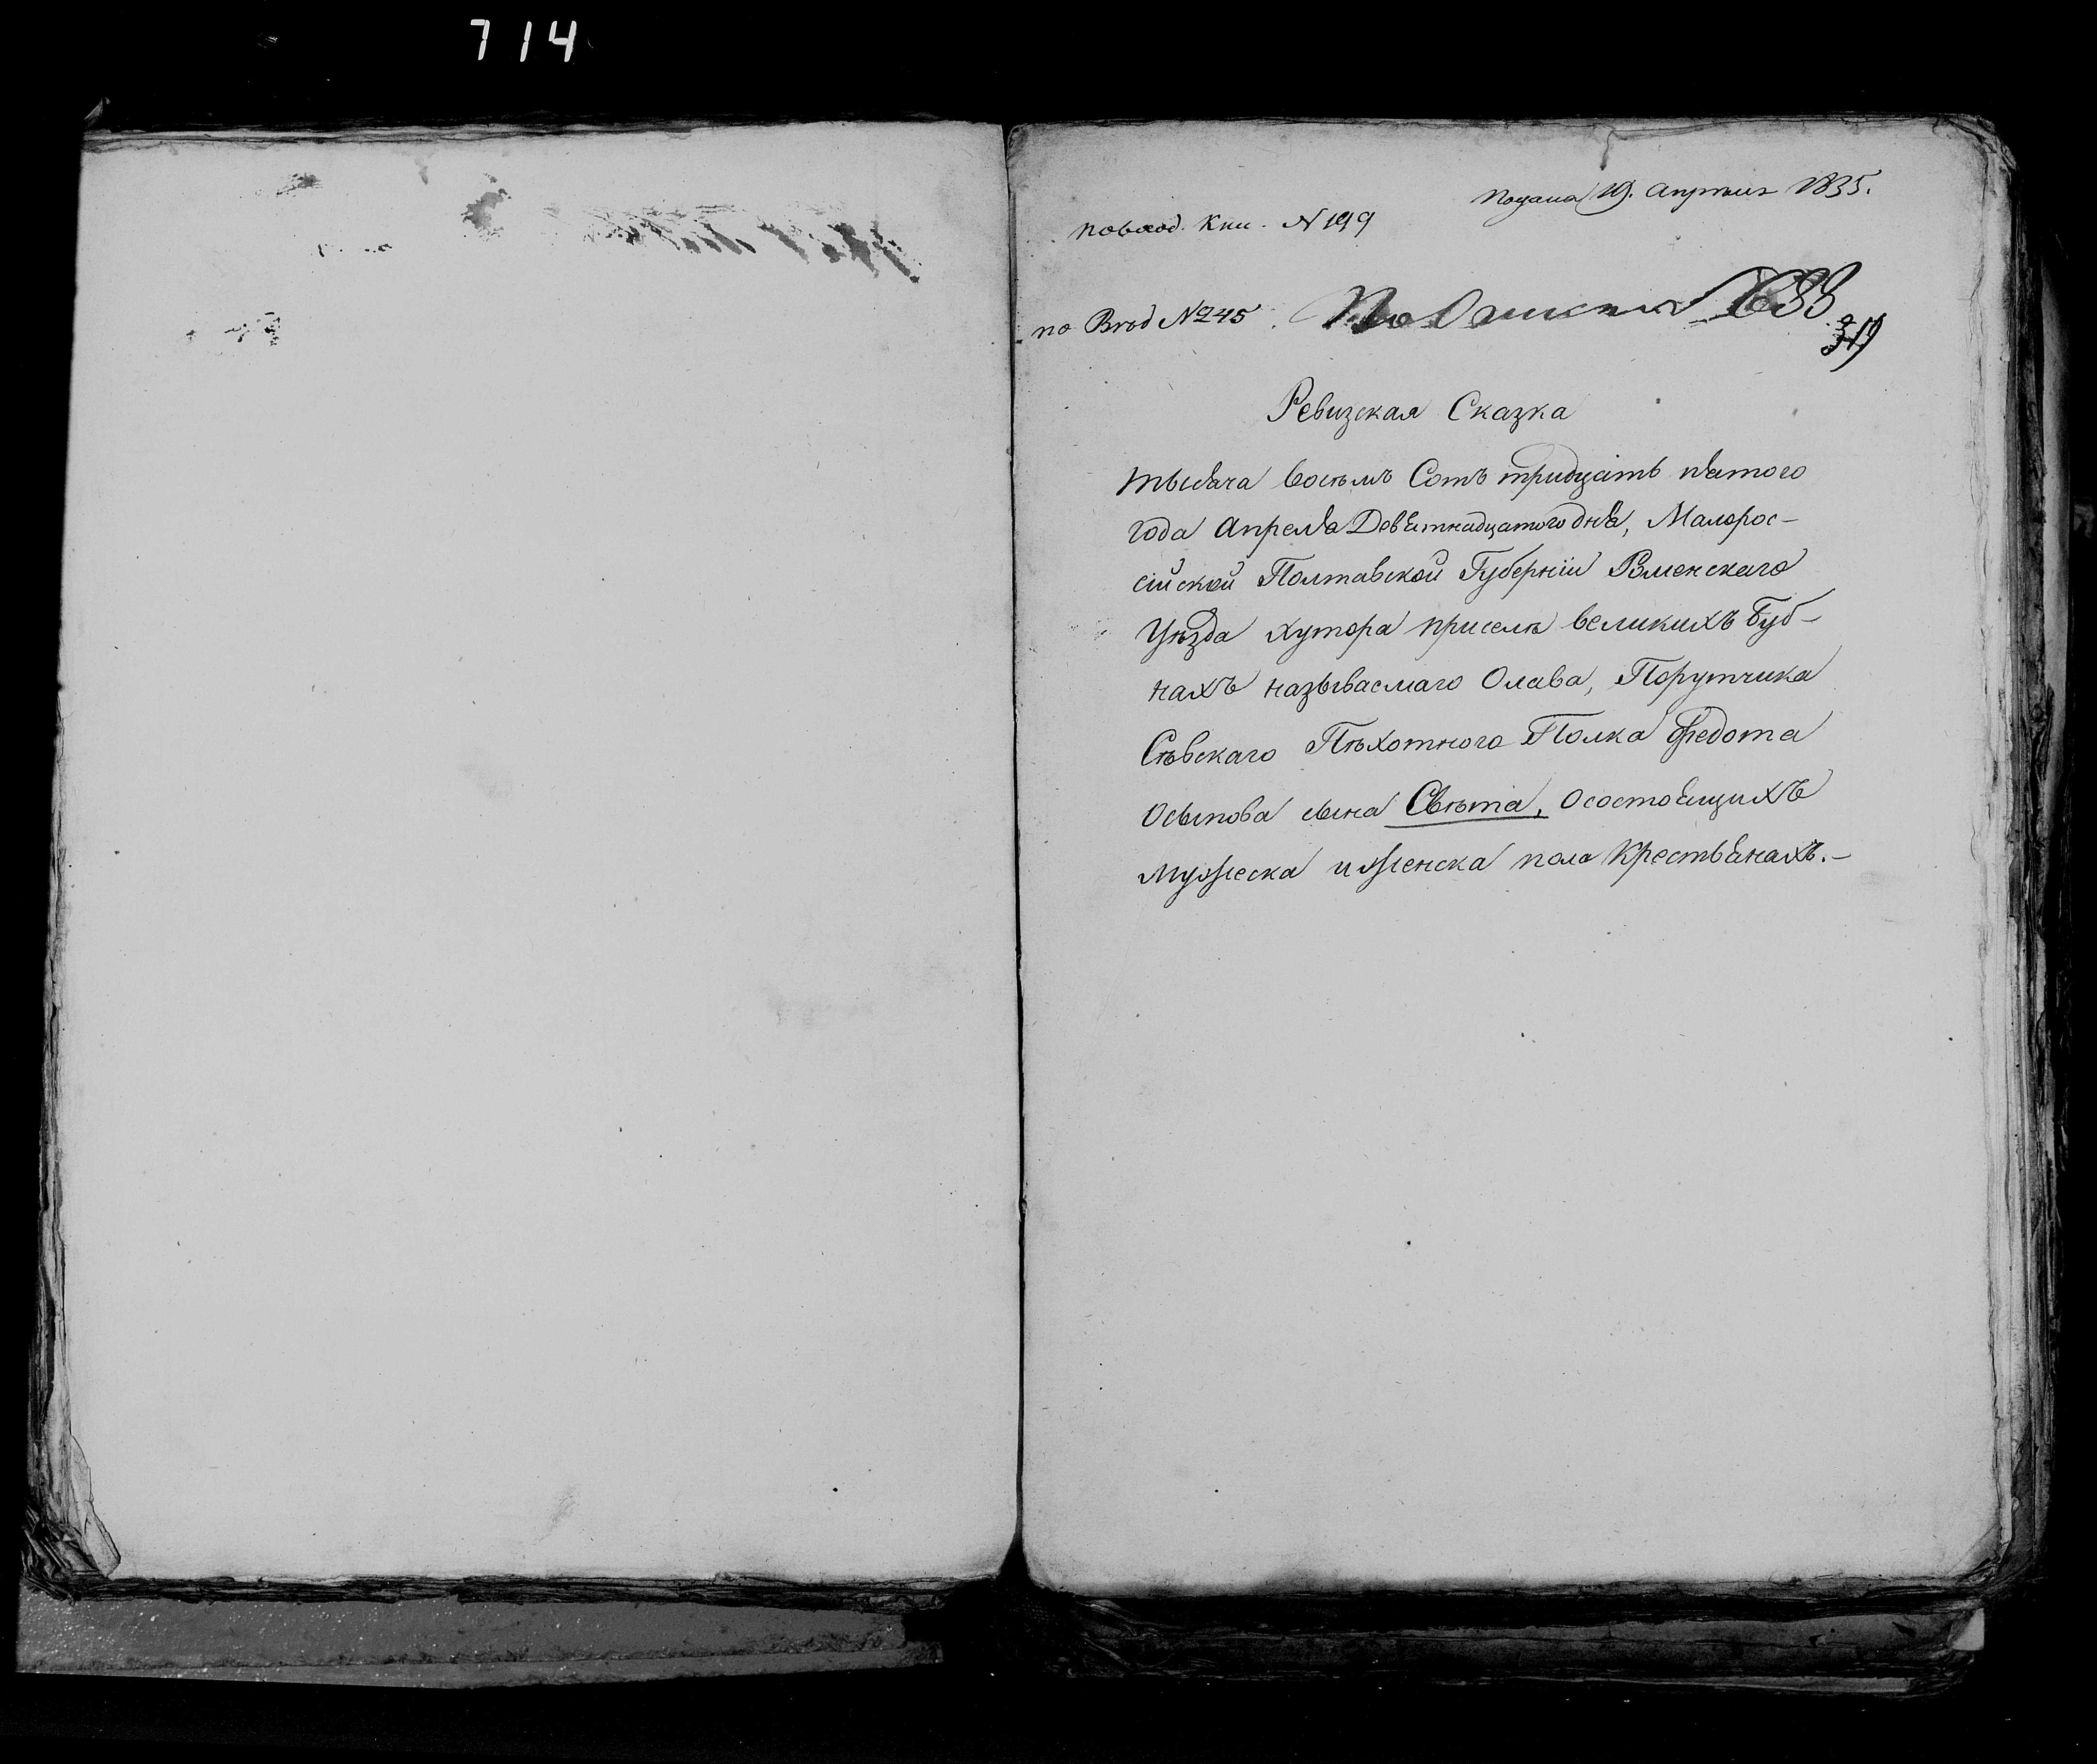 714
Подана 19. Апрѣля 1835.
повход. Кни. N 199
по Вход № 245
По Описи № 633
319
Ревизская Сказка
тысяча восемъ Сотъ тридцать пятого
года Апреля Девятнадцатого дня, Малорос-
сійской Полтавской Губерніи Роменскаго
Уѣзда хутора приселѣ великихъ Буб-
нахъ называемаго Олава, Порутчика
Сѣвскаго Пѣхотного Полка Федота
Осыпова сына Свѣта, О состоящихъ
мужеска и женска пола Крестьянахъ.-